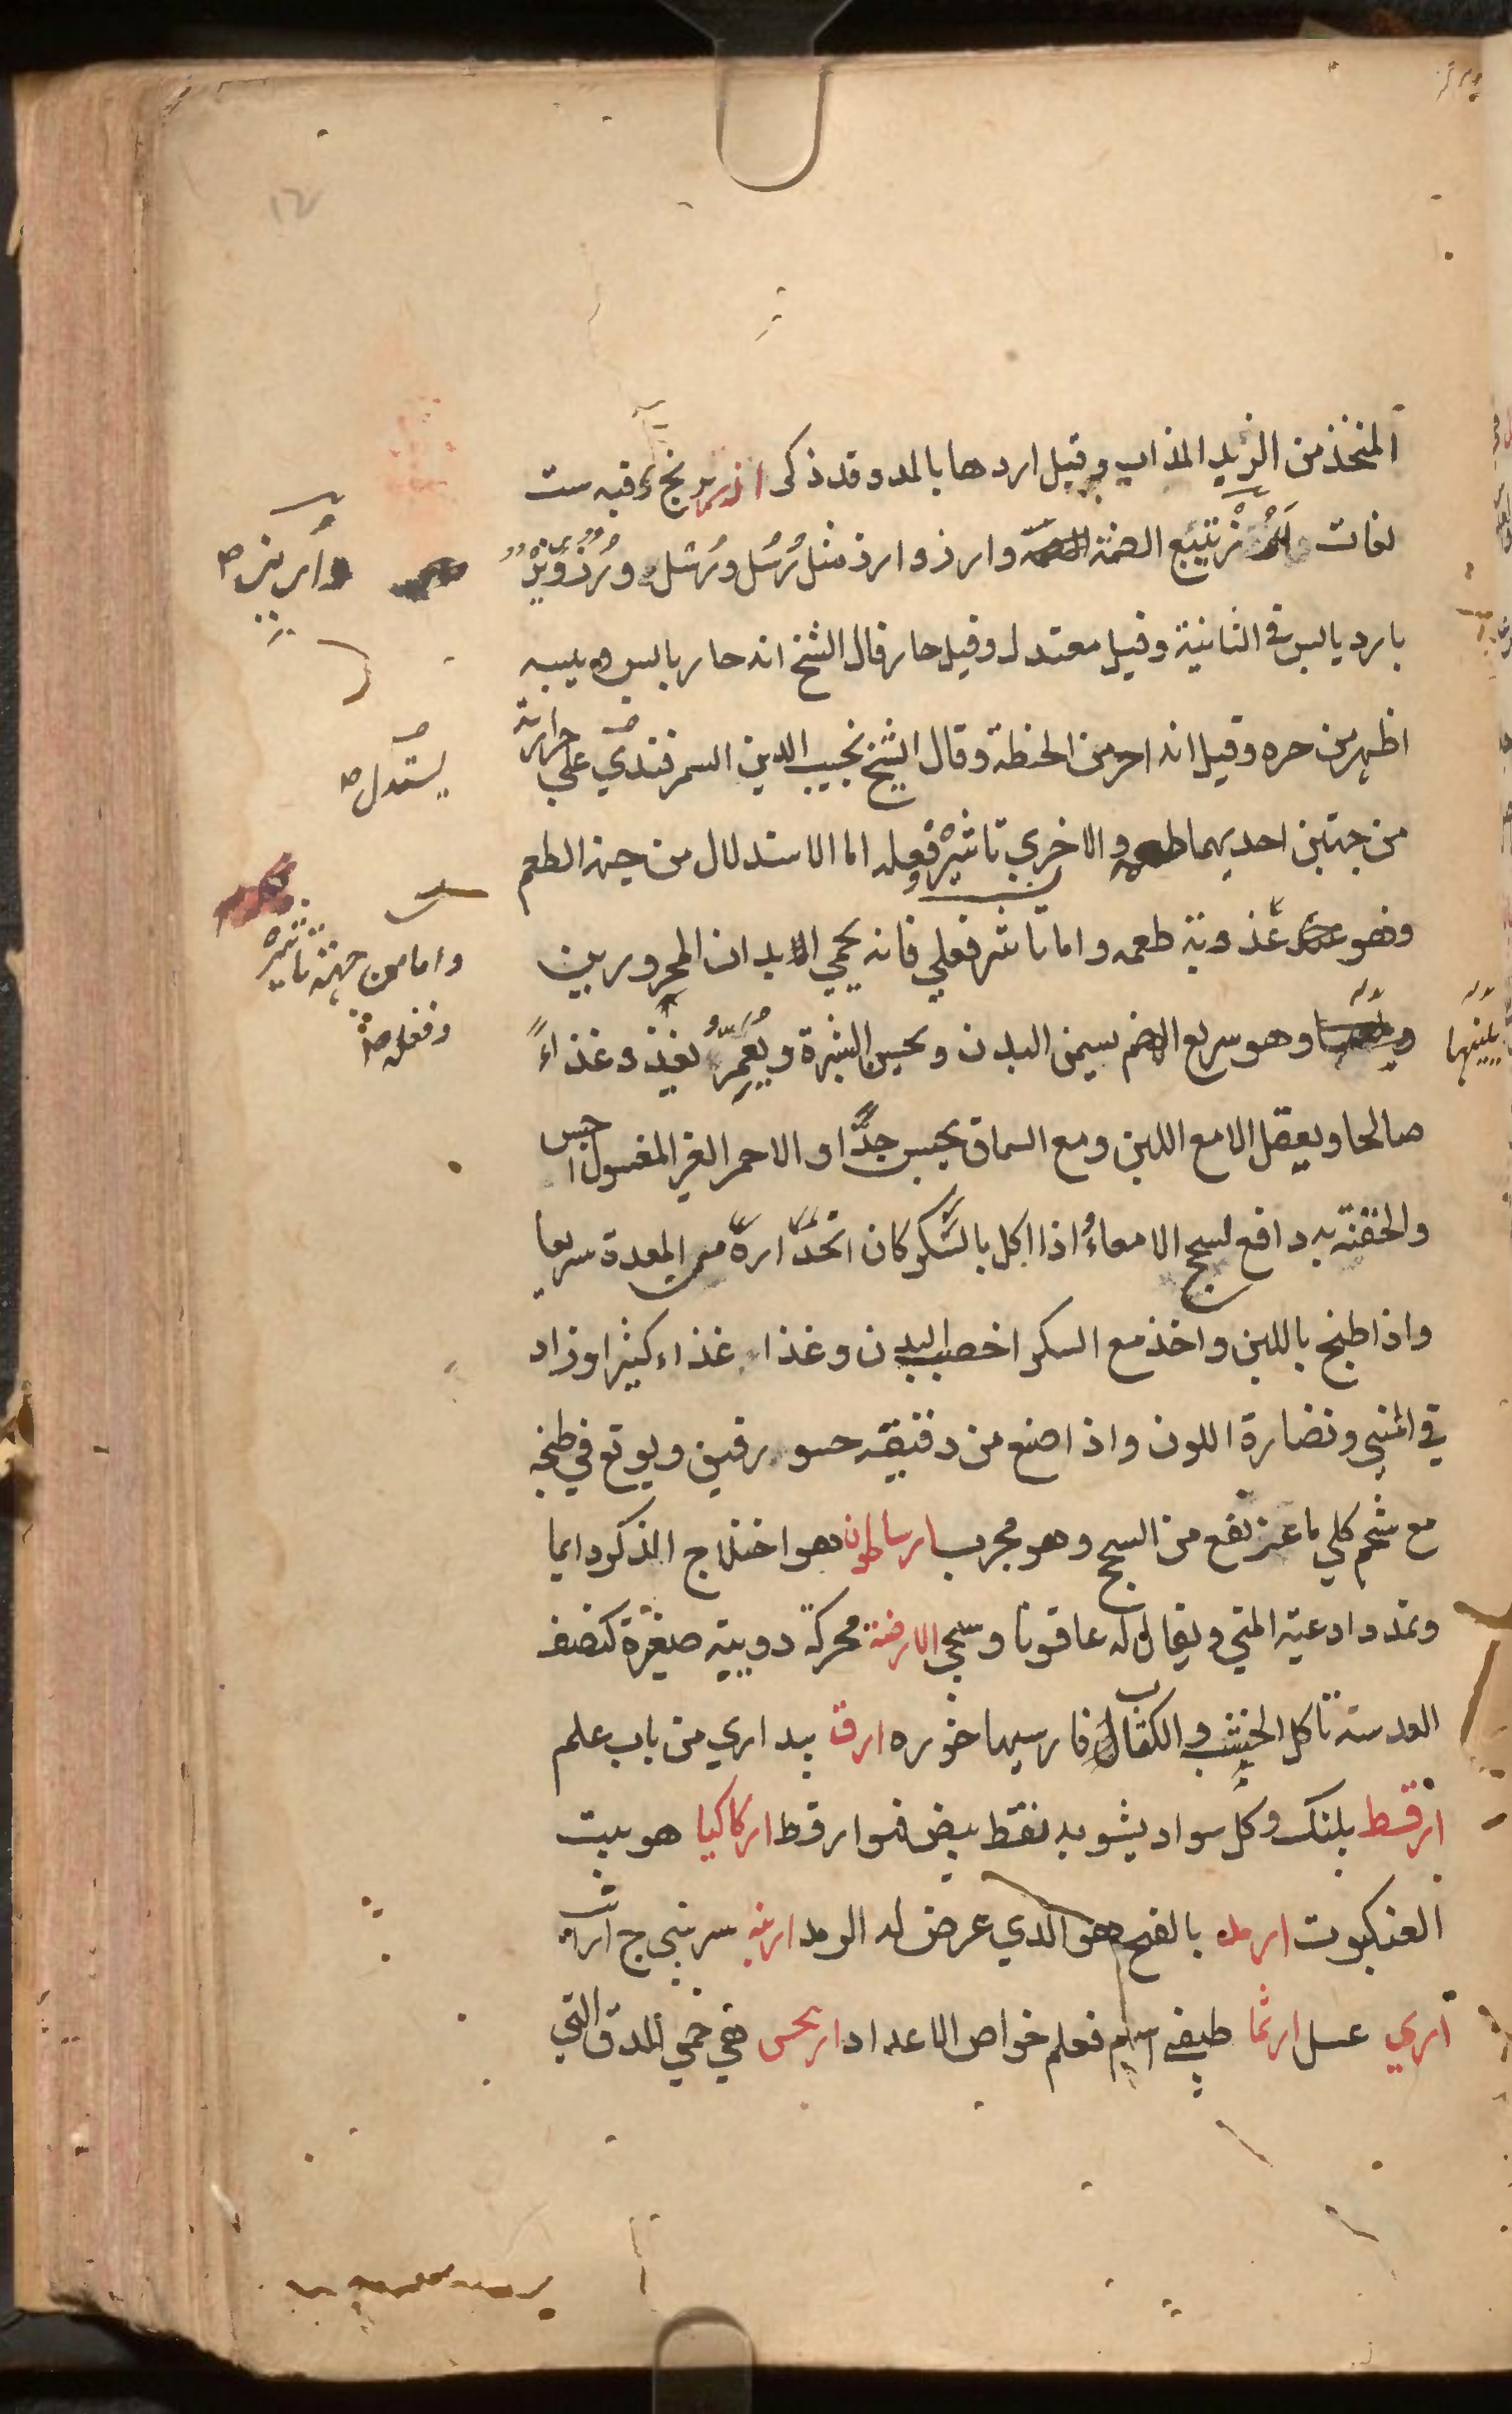 المتخذ من الزبد المذاب وقيل اردها بالمد وقد ذكر ارز برنج فيه ست
لغات تتبع الضمة وارز وارز مثل رُسُل ورُسْل ورُنْز
وأريز صح
بارد يابس في الثانية وقيل معتدل وقيل حار قال الشيخ انه حار يابس ويبسه
اظهر من حره وقيل انه احر من الحنطة وقال الشيخ نجيب الدين السمرقندي علي حرارته
يستدل صح
من جهتين احديهما طعمه والاخري تاثيره وفعله اما الاستدلال من جهة الطعم
وهو عذوبة طعمه واما تاثر فعلي فانه يحمي الابدان المحرورين
واما من جهة تاثيره
وفعله صح
وهو سريع الهضم يسمن البدن ويحسن البشرة ويُعمِّر يغيذ وغذاءً
يلينها
صالحا ويعقل الا مع اللبن ومع السماق يحبس جدًّا او الاحمر الغير المغسول احبس
والحقنة به دافع لسحج الامعاء اذا اكل بالسكر كان انحداره من المعدة سريعا
واذا طبخ باللبن واخذ مع السكر اخصب البدن وغذاء غذاء كثيرا وزاد
في المني ونضارة اللون واذا صنع من دقيقه حسو رقيق ويوقع في طبخه
مع شحم كلي ماعز نفع من السحج وهو مجرب ارساطون هو اختلاج الذكر دايما
وتمدد ادعية المني ويقال له عاقونا وسجي الارضة محركة دويبة صغيرة كنصف
العدسة تاكل الخشب والكتاب فارسيها خوره ارق بيداري من باب علم
ارقط پلنك وكل سواد يشوبه نقط بيض فهو ارقط اركاكيا هو بيت
العنكبوت ارمد بالفتح هو الذي عرض له الرمد ارنبه سر بني ج ارانب
اري عسل ارثما طيقي اسم فعلم خواص الاعداد اريحس هي حمي الدق التي